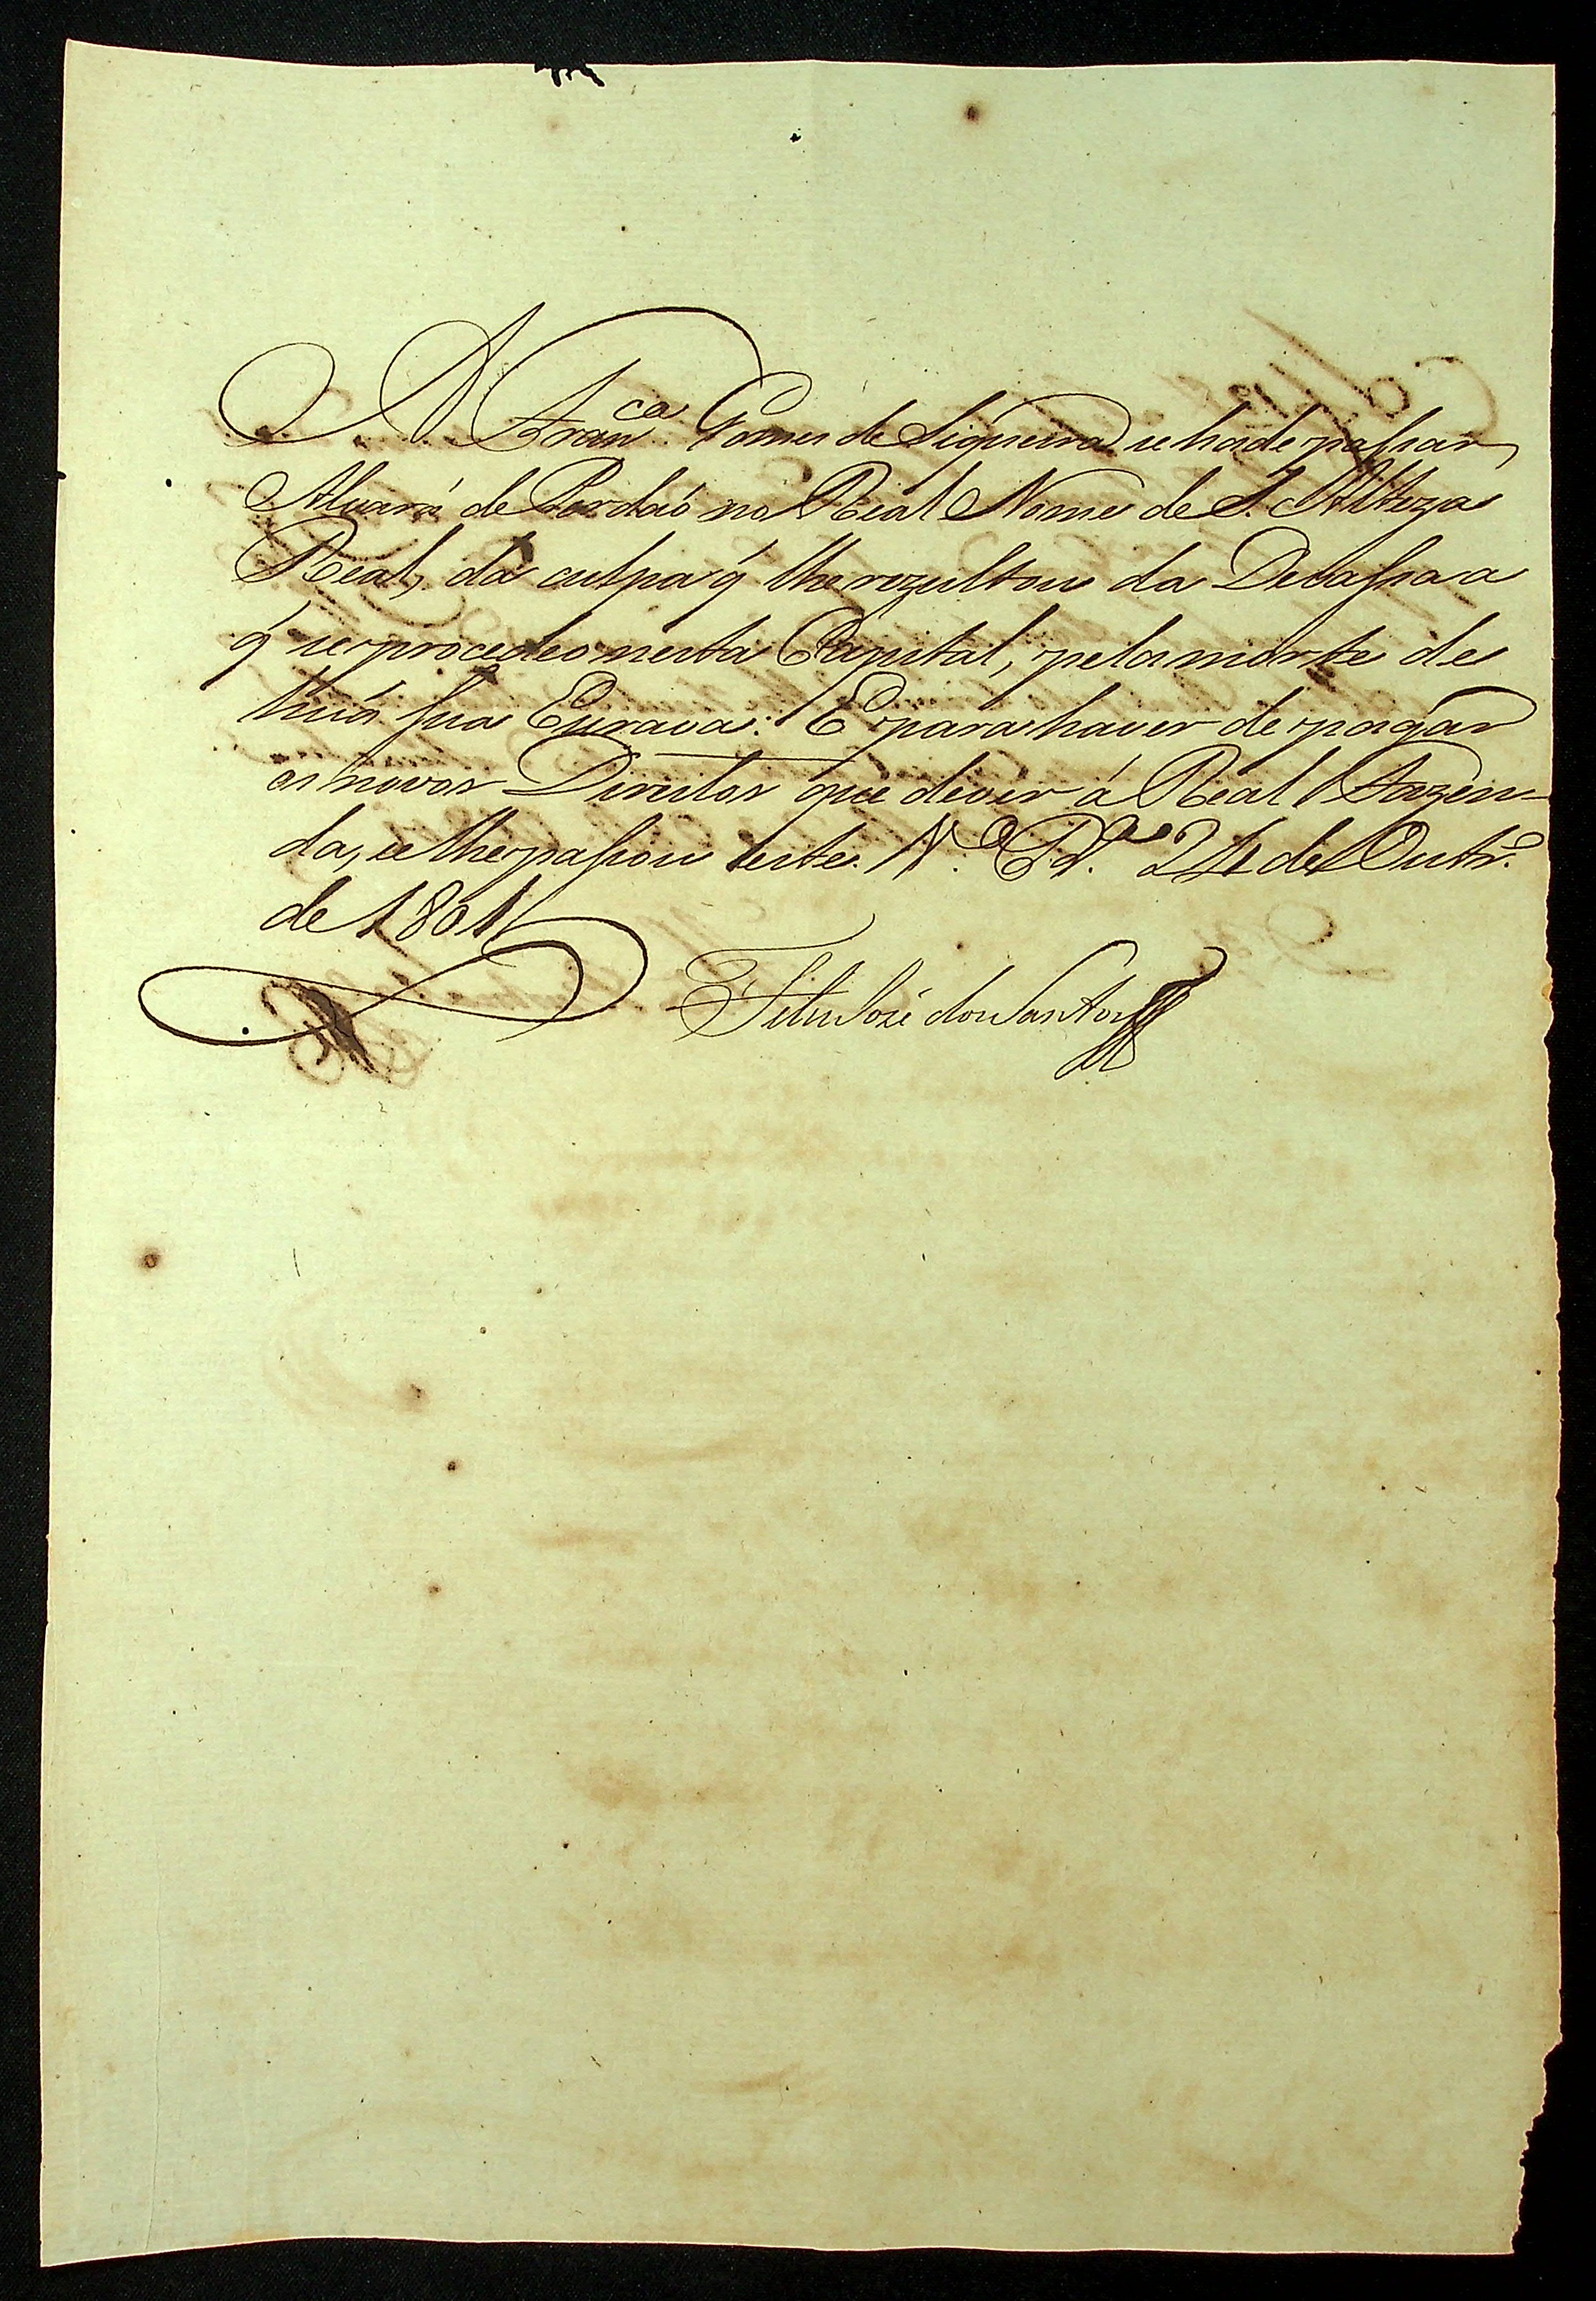 A Fran.ca Gomes de Siqueira se hade passar
Alvará de Perdaõ no Real Nome de S. Alteza
Real, da culpa q̃ lhe rezultou da Devassa a
q̃ se procedeo nesta Capital, pela morte de
huã sua Escrava: E para haver de pagar
os novos Direitos que dever á Real Fazen-
da, se lhe passou este. N. 24 de Outr.o
de 1801
José dos Santos